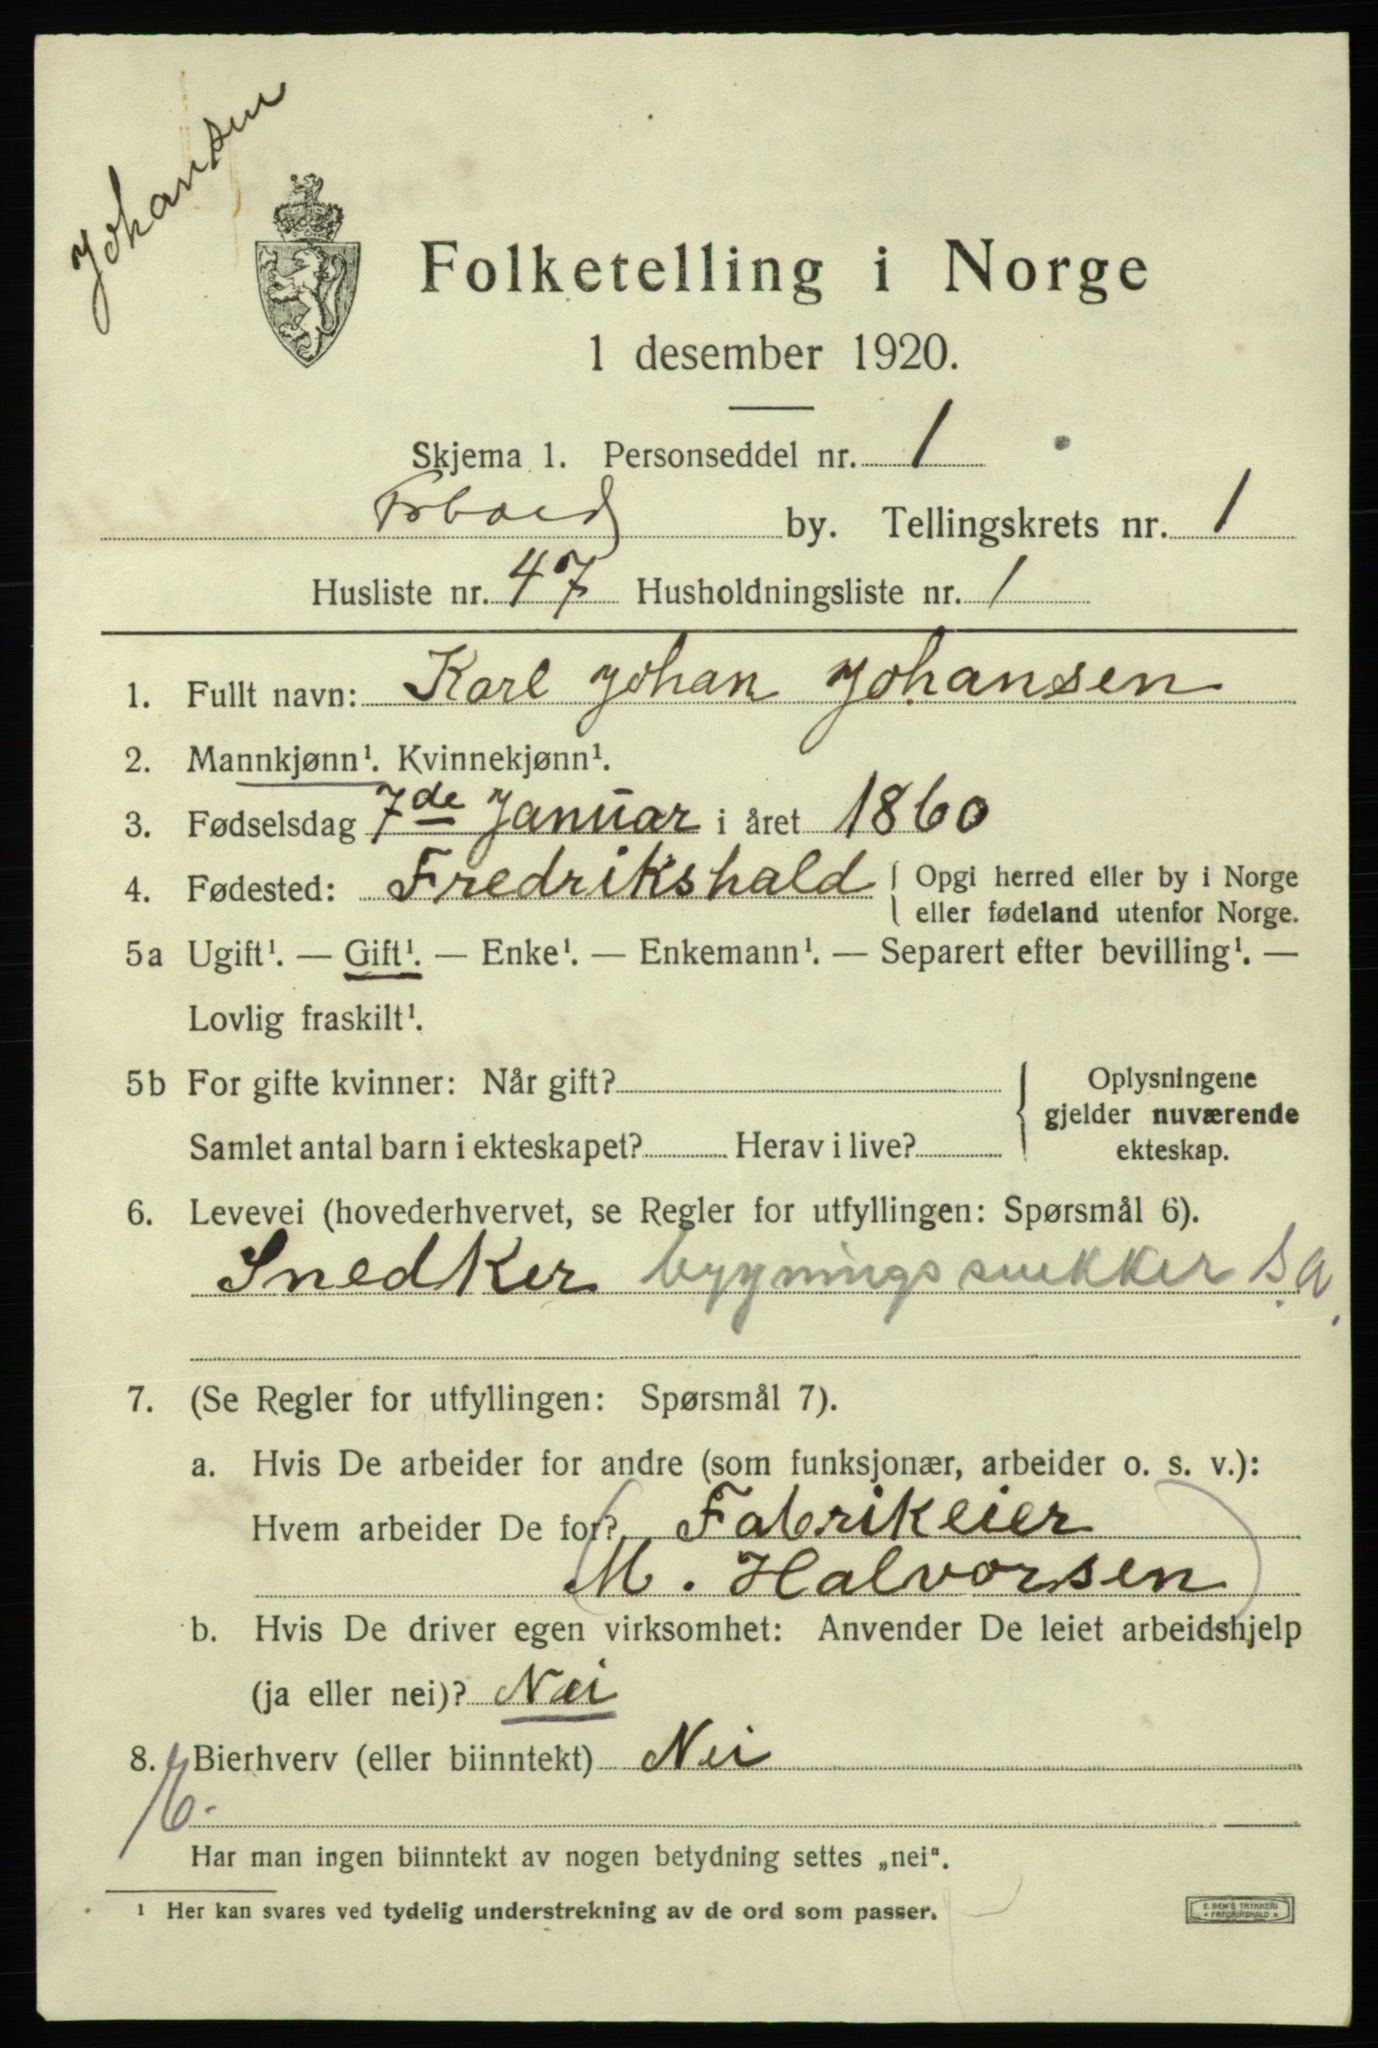 Johansen
Folketelling i Norge
1 desember 1920.
Skjema 1. Personseddel nr. 1
by. Tellingskrets nr. 1
Husliste nr. 47 Husholdningsliste nr. 1
1. Fullt navn: Karl Johan Johansen
2. Mannkjønn¹. Kvinnekjønn¹.
3. Fødselsdag 7de Januar i året 1860
4. Fødested: Fredrikshald { Opgi herred eller by i Norge
eller fødeland utenfor Norge.
5a Ugift¹. — Gift¹. — Enke¹. — Enkemann¹. — Separert efter bevilling¹. —
Lovlig fraskilt¹.
5b For gifte kvinner: Når gift? { Oplysningene
gjelder nuværende
Samlet antal barn i ekteskapet? Herav i live? ekteskap.
6. Levevei (hovederhvervet, se Regler for utfyllingen: Spørsmål 6).
Snedker bygningssnekker
7. (Se Regler for utfyllingen: Spørsmål 7).
a. Hvis De arbeider for andre (som funksjonær, arbeider o. s. v.):
Hvem arbeider De for? (Fabrikeier
M. Halvorsen)
b. Hvis De driver egen virksomhet: Anvender De leiet arbeidshjelp
(ja eller nei)? Nei
8. Bierhverv (eller biinntekt) Nei
Har man ingen biinntekt av nogen betydning settes „nei".
¹ Her kan svares ved tydelig understrekning av de ord som passer.
E. SEM'S TRYKKERI
FREDRIKSHALD